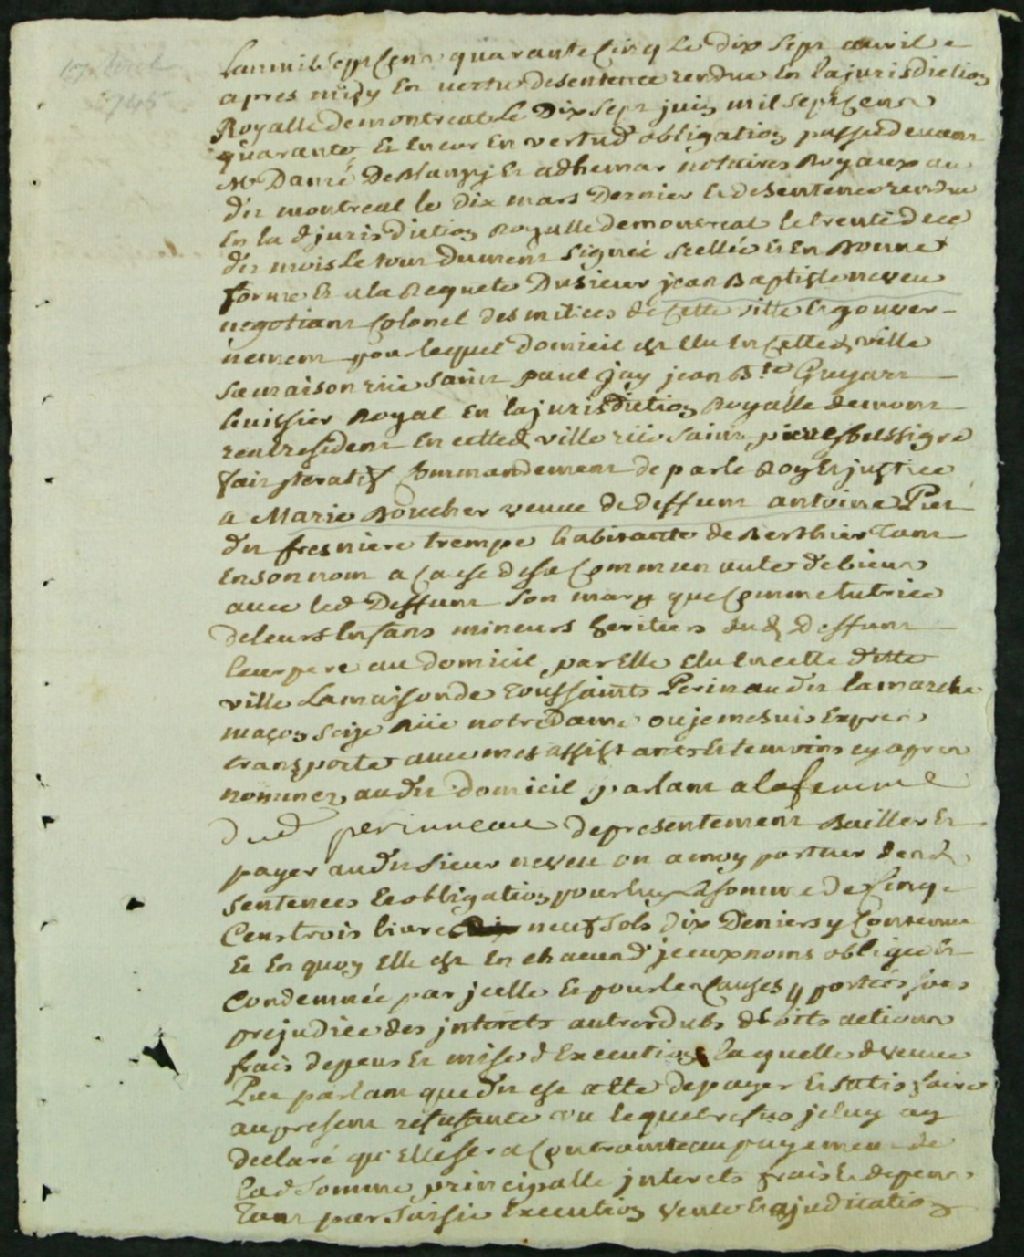 17 avril
1745
Lan mil sept Cens quarante Cinq Le dix sept avril
apres midy En vertu de sentence rendue En la jurisdiction
Royalle de montreal Le Dix sept juin mil sept Cens
quarante Et Encor En vertu d'obligation passé devant
Me Danré De Blanzy Et adhemar notaires Royaux au
dit montreal le dix mars Dernier Et de sentence rendue
En la d jurisdiction Royalle de montreal le trente du
dit mois Le tout dument signée scellée Et En Bonne
forme Et a la Requete Du sieur jean Baptiste neveu
negotiant Colonel des milices de Cette ville Et gouver-
nement pour lequel domicil est Elu En Cette d ville
sa maison rüe saint paul jay jean Bte Guyart
huissier Royal En la jurisdiction Royalle de mont
real resident En cette d ville rüe saint
fait iteratif Commandement de par le Roy Et justice
a Marie Boucher veuve de deffunt antoine Piet
dit fresniere trempe habitante de Berthier tant
En son nom a Cause de sa Communauté de biens
avec led Deffunt son mary que Comme tutrice
de leurs Enfans mineurs heritiers dud deffunt
leur pere au domicil par Elle Elu En cette ditte
ville La maison de toussaints Perinau dit lamarche
maçon size Rüe notre Dame ou je me suis Expres
transporté avec mes assistants Et temoins cy apres
nommez au dit domicil parlant a la femme
dud perinneau de presentement Bailler Et
payer audit sieur neveu ou a moy porteur desd
sentences Et obligation pour luy La somme de Cinq
Cens trois livres neuf sols dix Deniers y Contenue
Et En quoy Elle est En chacun d'iceux noms obligée Et
Condemnée par jcelle Et pour les Causes y portées sans
prejudice des interets autres dubs droits actions
frais depens Et mise d Execution laquelle d veuve
Piet parlant que dit est a Eté de payer Et satisfaire
au present refusante vu lequel refus je luy ay
declaré qu'Elle sera Contrainte au payement de
lad somme principalle interets frais Et depens
tant par saisie Execution vente Et ajudication